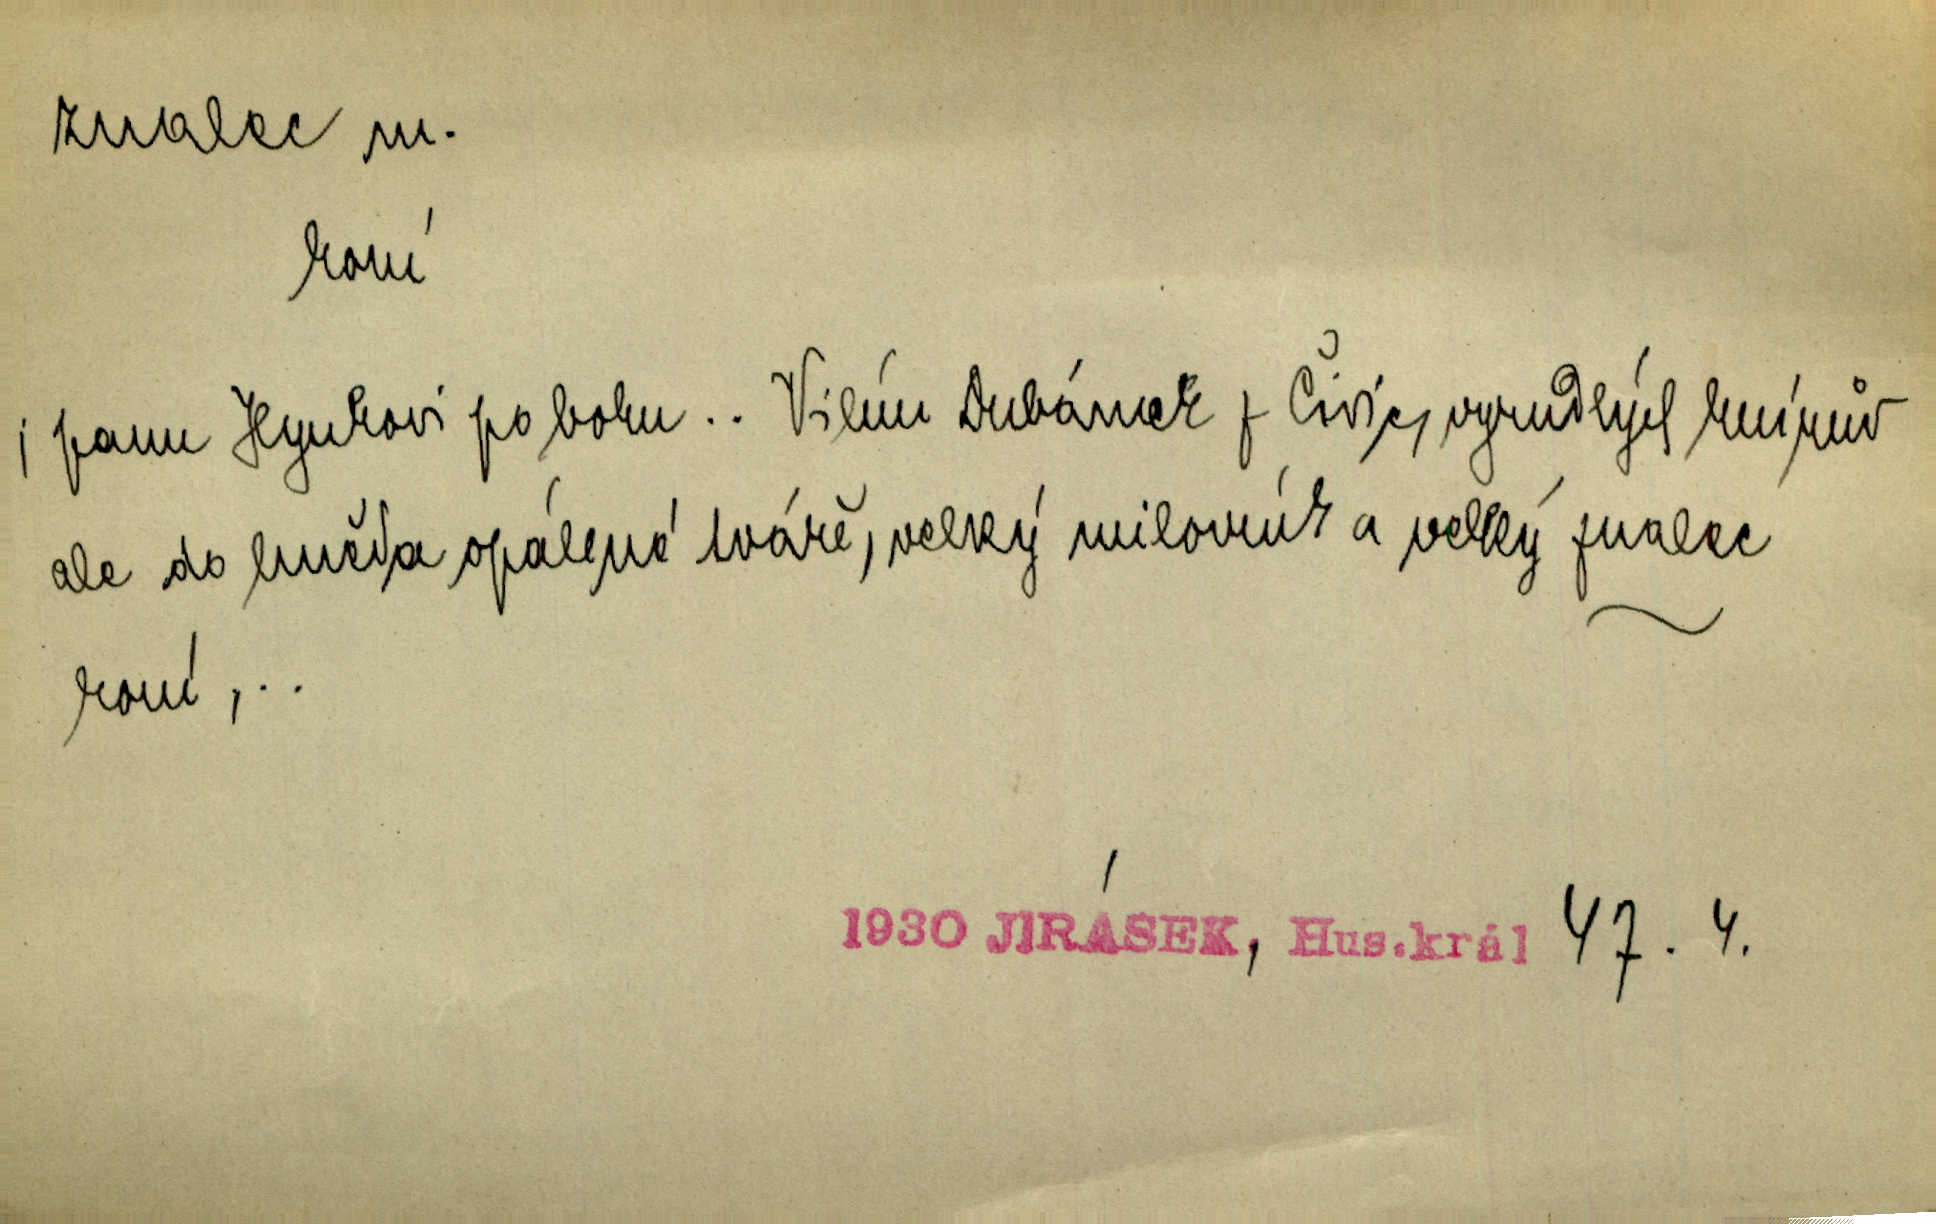 znalec m.
koní
; panu Hynkovi po boku .. Vilém Dubánek z Čivic, vyrudlých knírův
ale do hněda opálené tváře, velký milovník a velký znalec
koní, ..
1930 JIRÁSEK, Hus.král 47. 4.